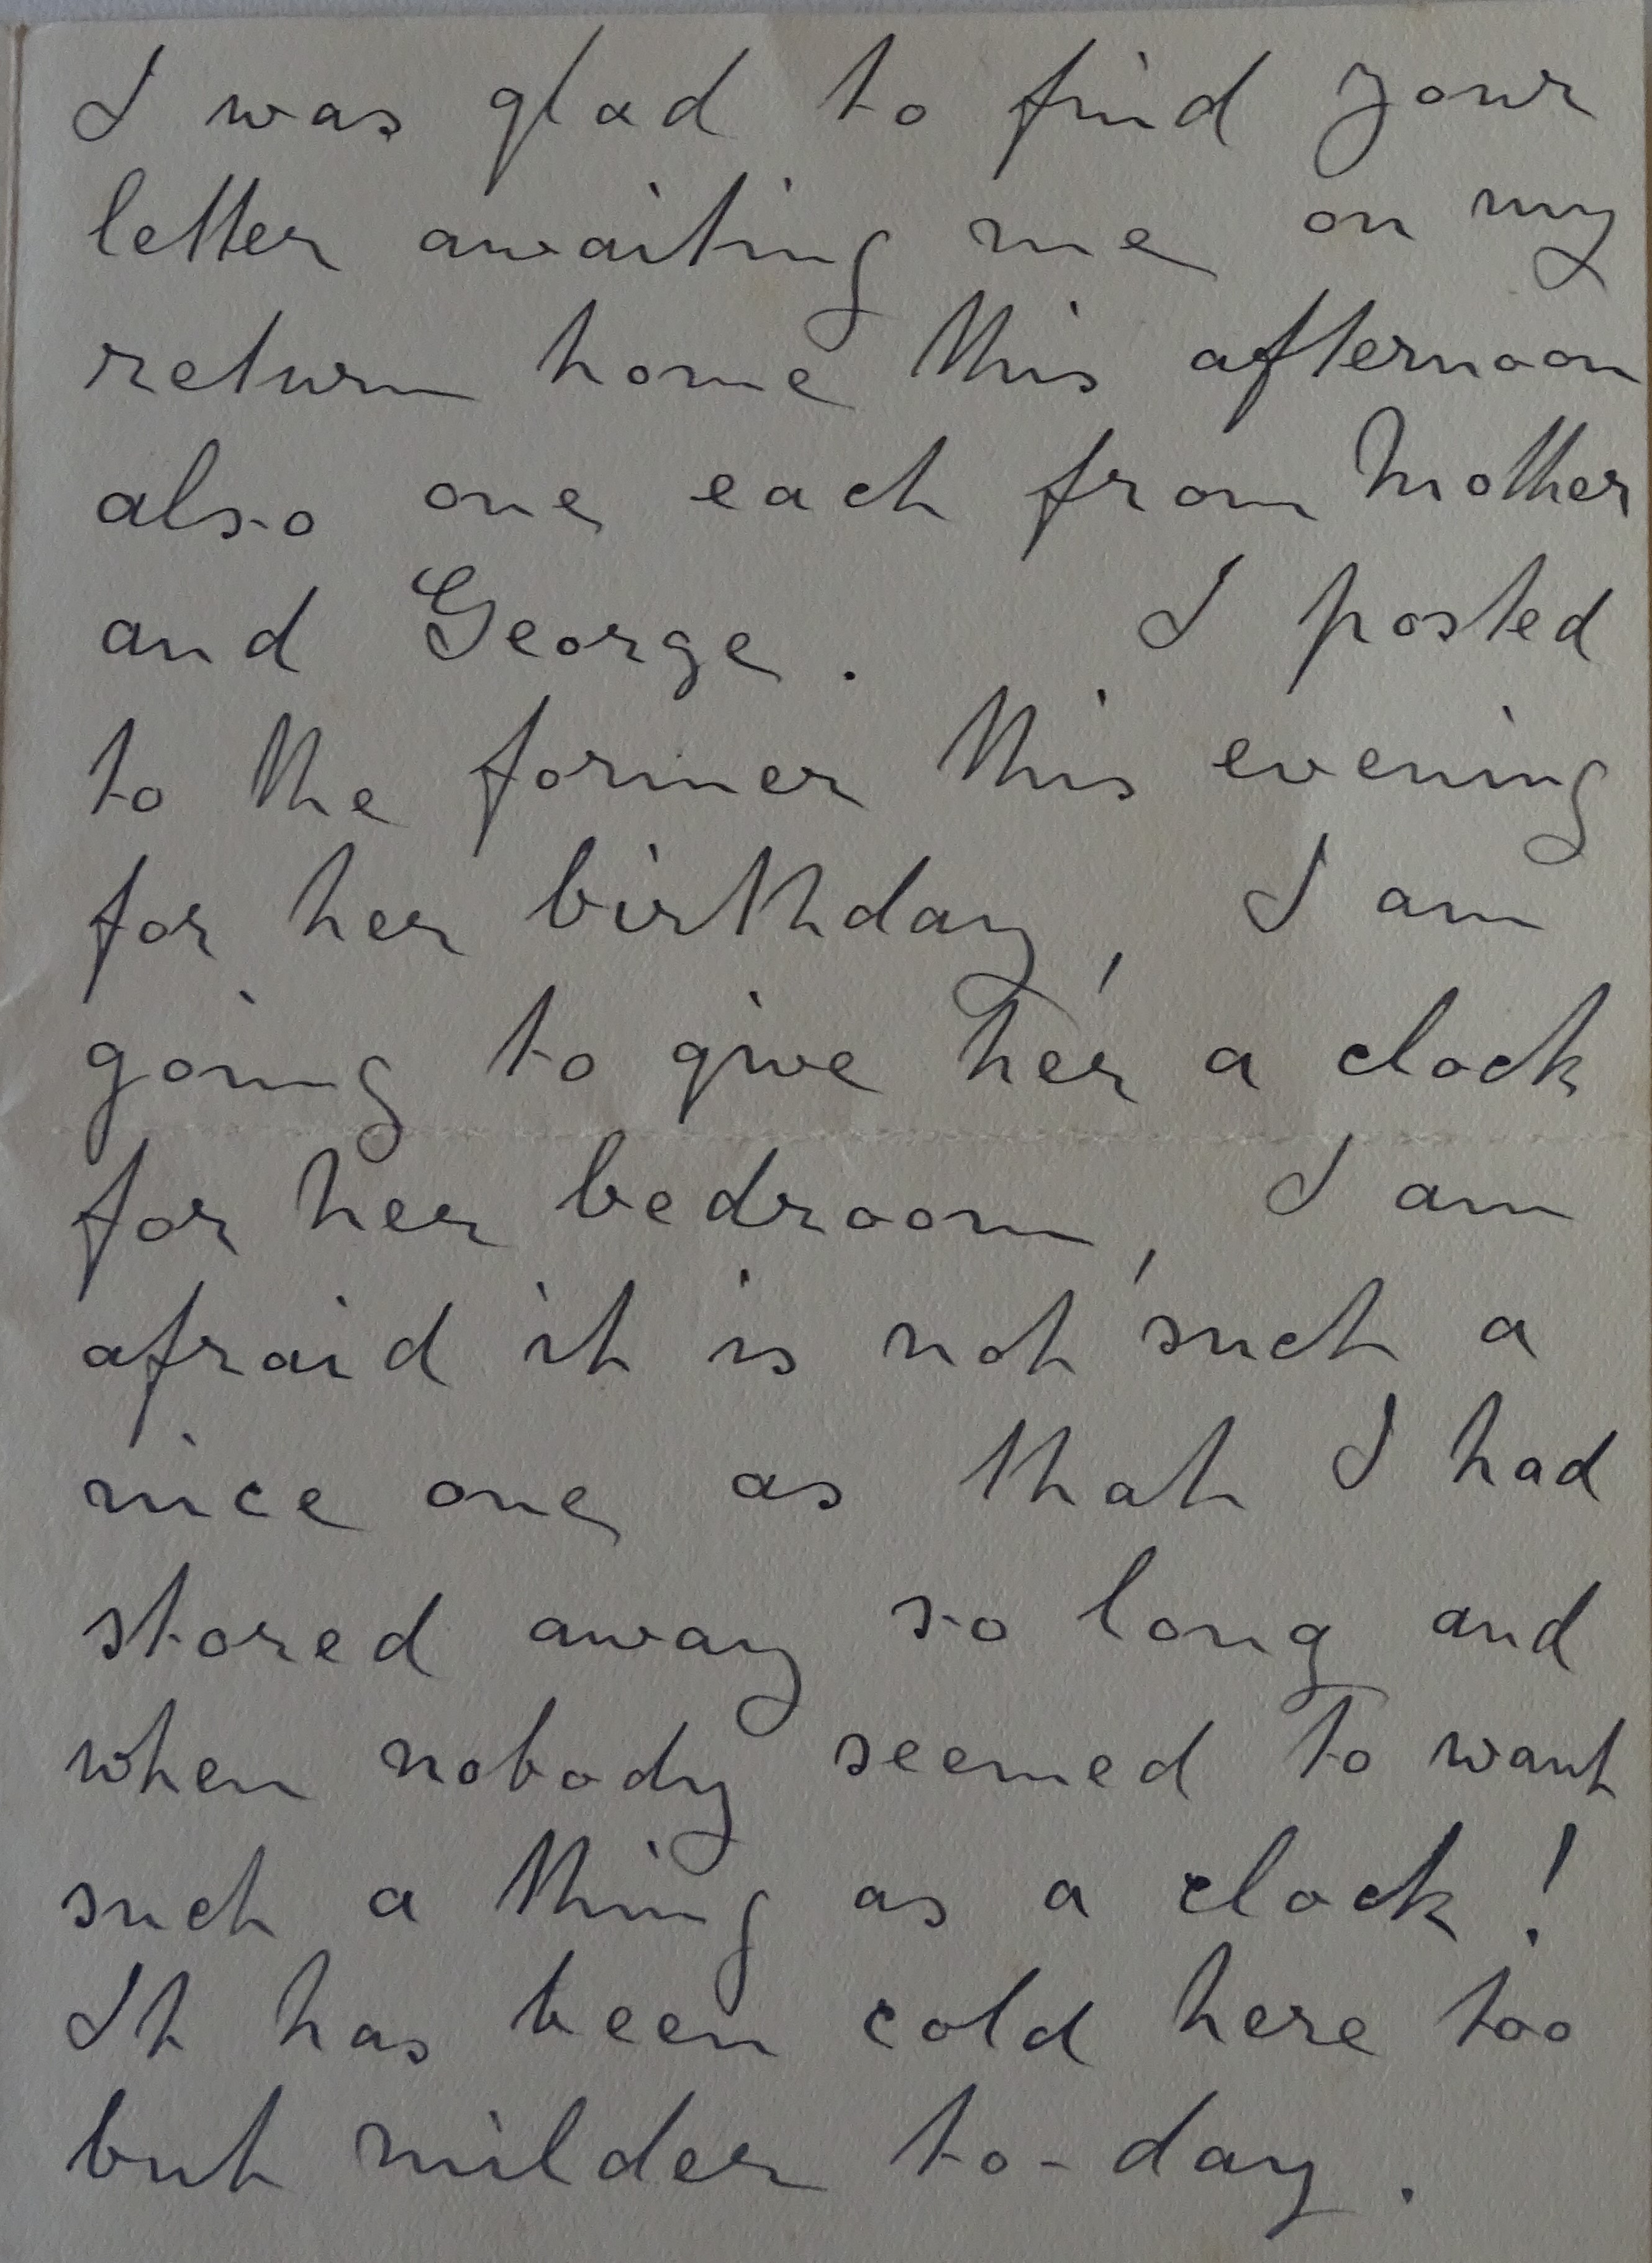 I was glad to find your
letter awaiting me on my
return home this afternoon
also one each from Mother
and George. I posted
to the former this evening
for her birthday, I am
going to give her a clock
for her bedroom, I am
afraid it is not such a
nice one as that I had
stored away so long and
when nobody seemed to want
such a thing as a clock!
It has been cold here too
but milder to-day.